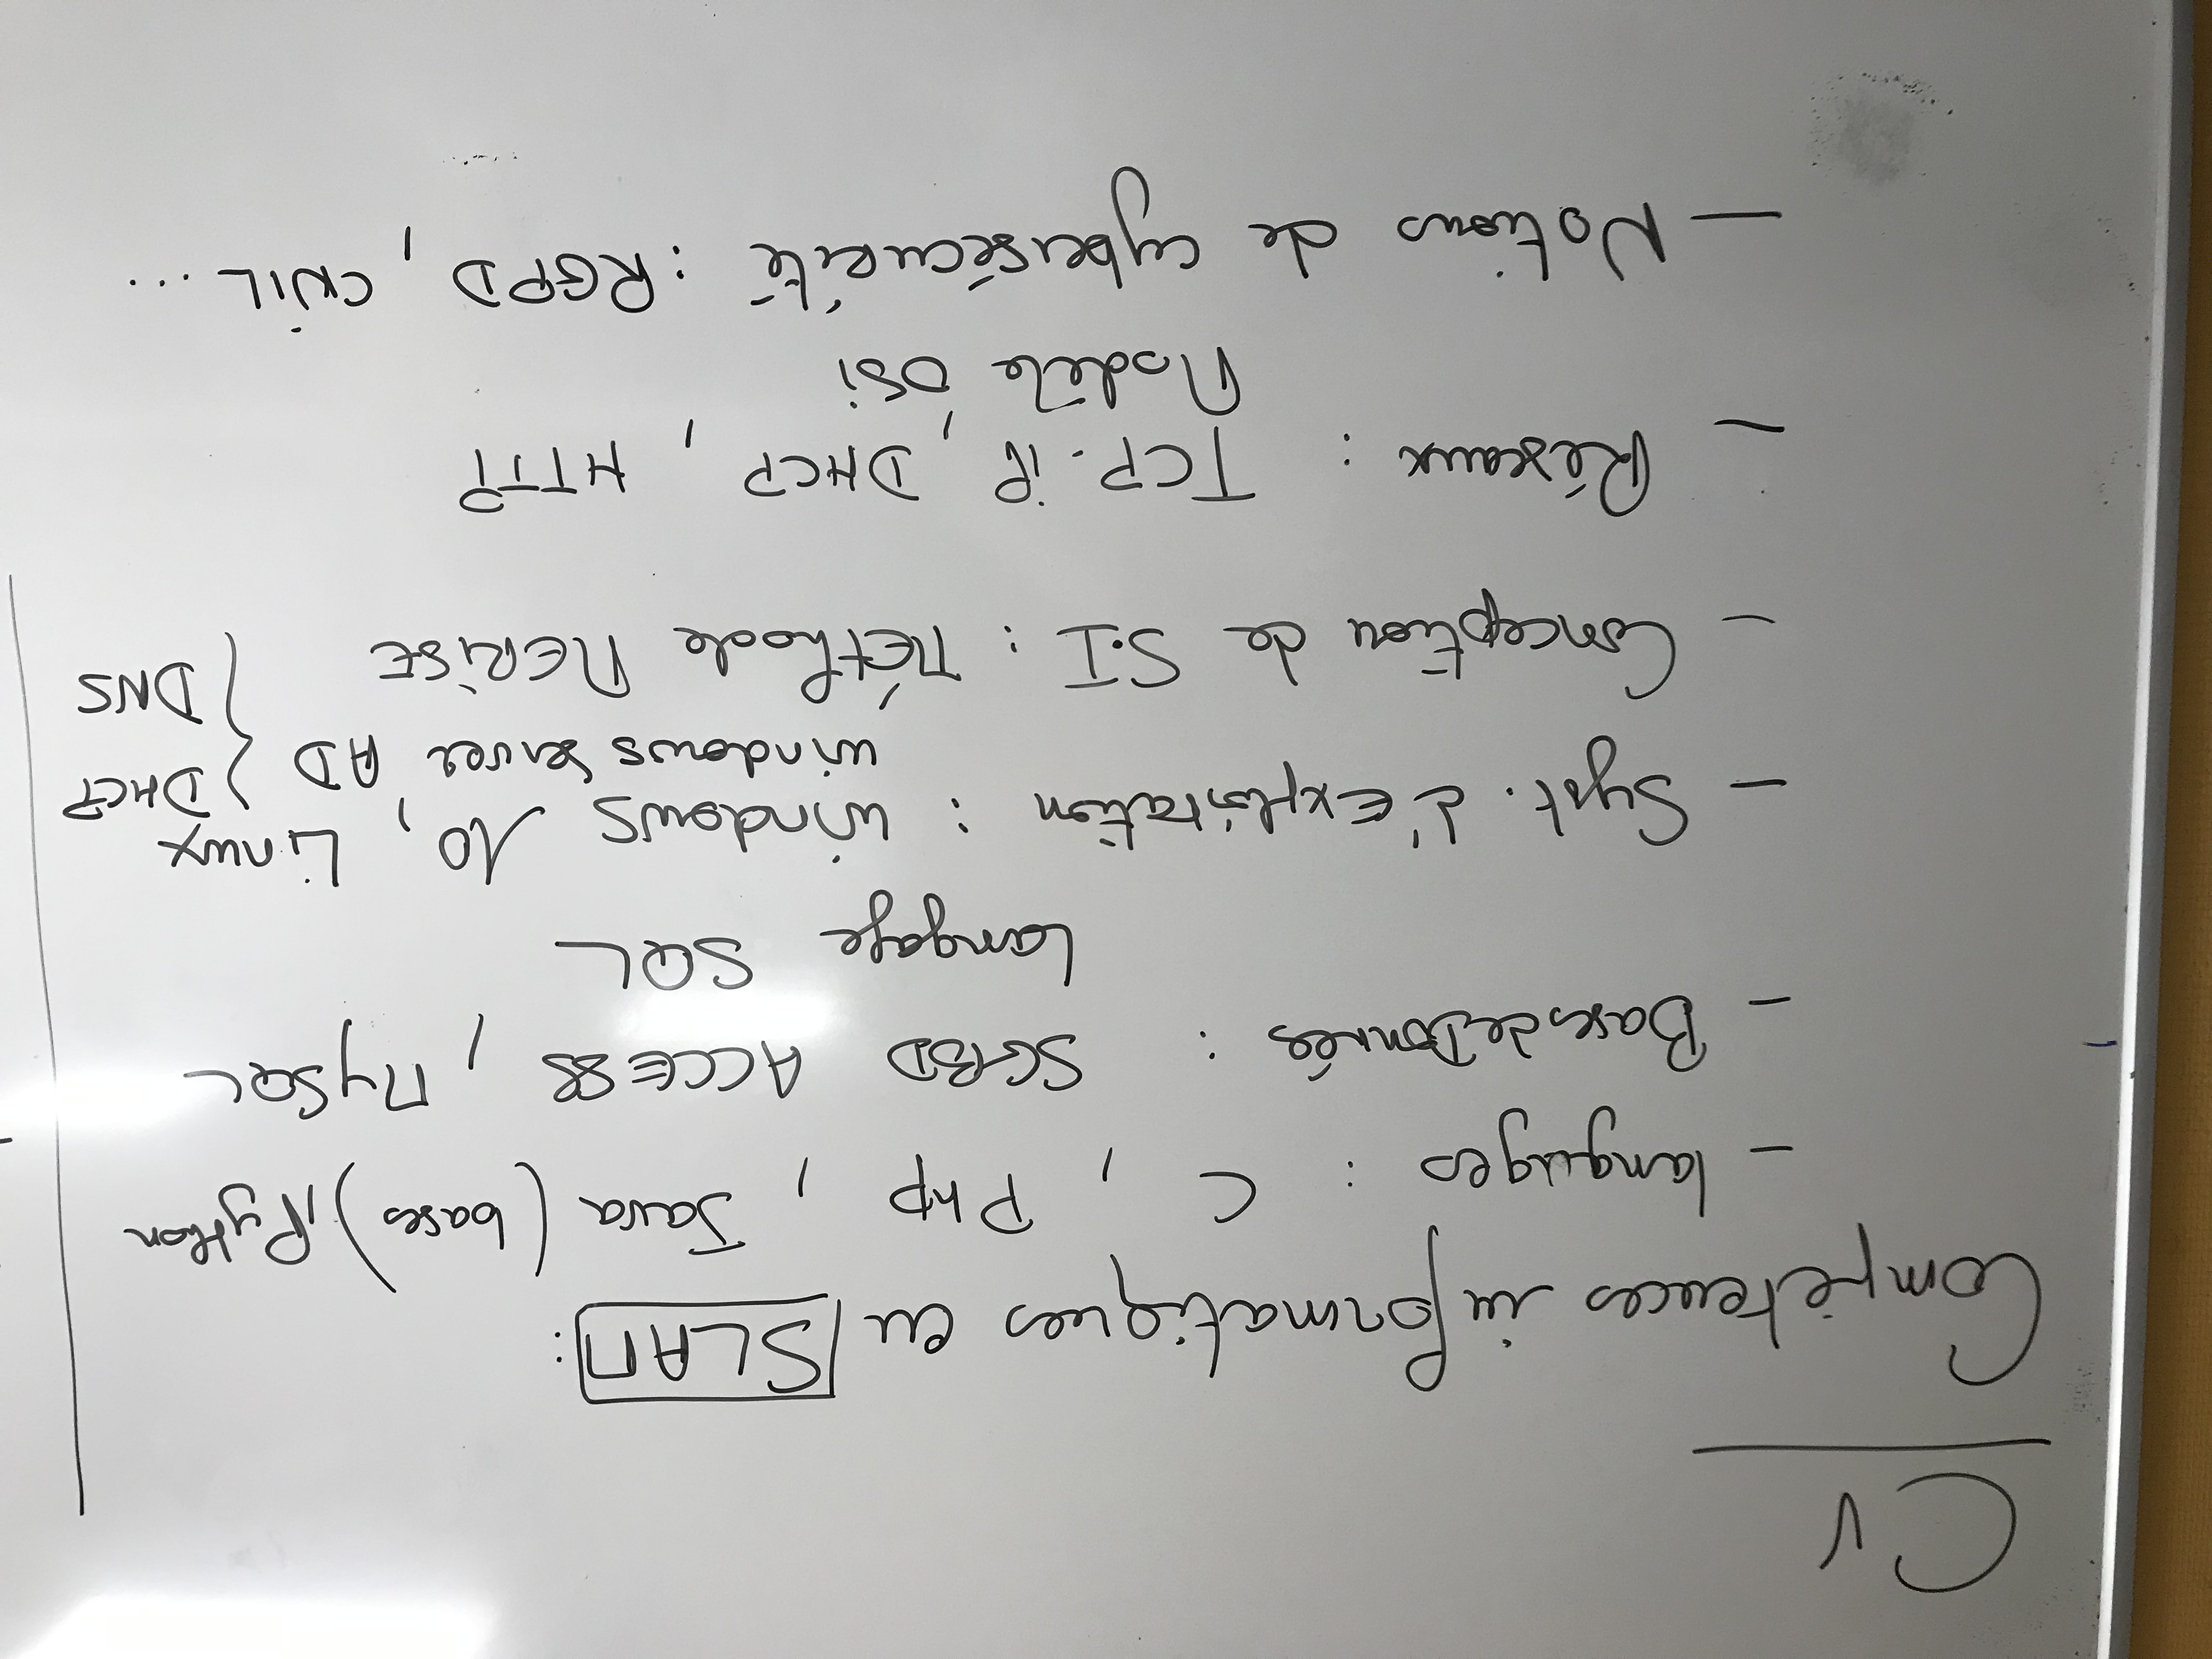 CV
Compétences informatiques en SLAM :
- languges : C , Php , Java (bases), Python
- Bases de Donnés : SGBD ACCESS , MySQL
Langage SQL
- Syst. d'Exploitation : windows 10, Linux
windows Server AD } DHCP
DNS
- Conception de S.I : MÉthode MERiSE
- Réseaux : TCP-iP, DHCP , HTTP
Modèle OSi
- Notions de cybersécurité : RGPD , CNiL ...